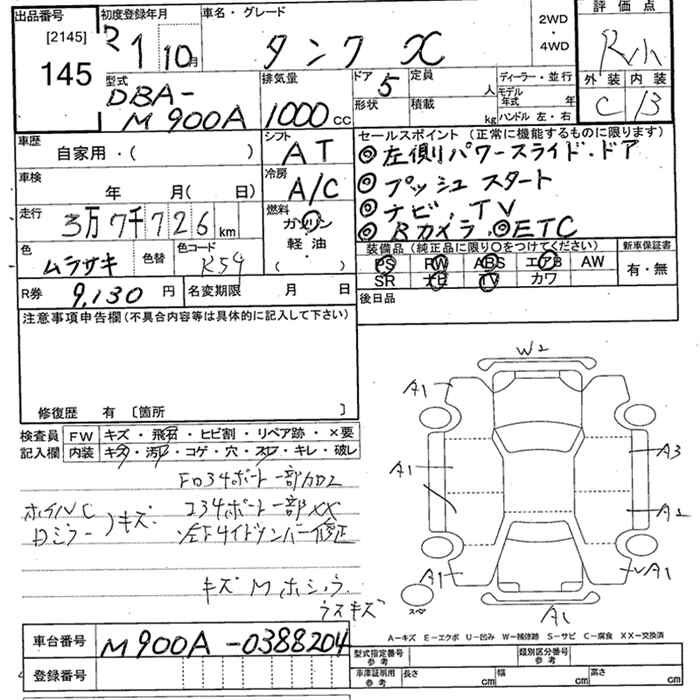 出品番号
[2145]
145
初度登録年月
R1 10月
車名・グレード
タンク X
2WD
・
4WD
評価点
R小
外装 内装
C B
型式
DBA-
M900A
排気量
1000 CC
ドア 5
形状
定員 人
積載 kg
ディーラー・並行
モデル年式 年
ハンドル 左・右
車歴
自家用・( )
シフト
AT
車検
年 月( 日)
冷房
A/C
走行
3万7千726km
燃料
ガソリン
軽・油
( )
色
ムラサキ
色替
色コード
R59
R券 9,130 円
名変期限 月 日
セールスポイント(正常に機能するものに限ります)
◎左側パワースライド・ドア
◎プッシュスタート
◎ナビ、TV
◎Bカメラ.◎ETC
装備品(純正品に限り〇をつけてください)
新車保証書
PS PW ABS エアB AW
有・無
SR ナビ TV カワ
後日品
注意事項申告欄(不具合内容等は具体的に記入して下さい)
修復歴 有〔箇所 〕
検査員
記入欄
FW キズ・飛石・ヒビ割・リペア跡・×要
内装 キズ・汚れ・コゲ・穴・スレ・キレ・破レ
ホイルC
Dミラー
)キズ.
キズ M ホシ.ラ
ラスキズ
W2
A1
A1
A3
A2
A1
A1
A1
スペ
A-キズ E-エクボ U-凹み W-補修跡 S-サビ C-腐食 XX-交換済
車台番号 M900A-0388204
登録番号
型式指定番号
参考
類別区分番号
参考
車庫証明用
参考
長さ cm
幅 cm
高さ cm